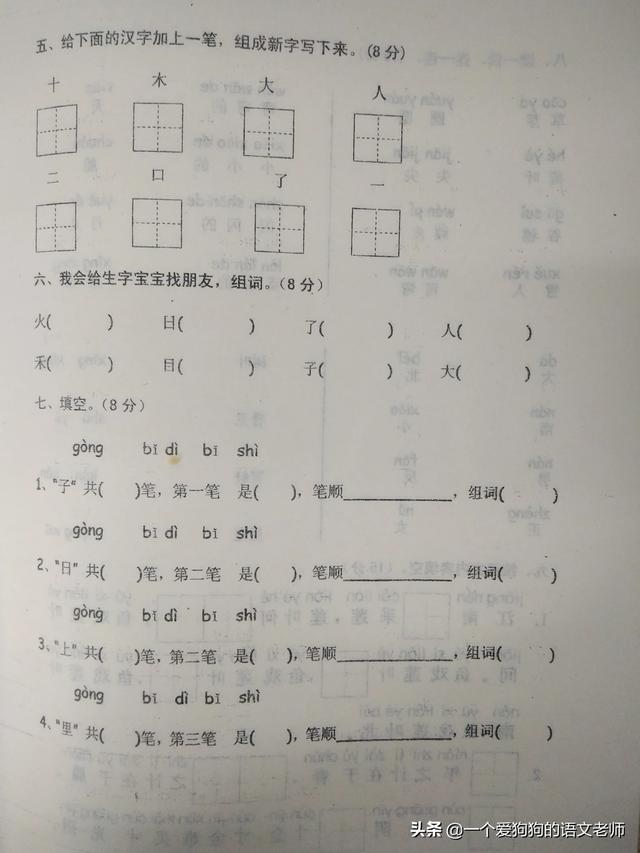 五、给下面的汉字加上一笔，组成新字写下来。(8分)
十 木 大 人
二 口 了 一
六、我会给生字宝宝找朋友，组词。(8分)
火( ) 日( ) 了( ) 人( )
禾( ) 目( ) 子( ) 大( )
七、填空。(8分)
gòng bǐ dì bǐ shì
1、"子"共( )笔，第一笔 是( )，笔顺____________，组词( )
gòng bǐ dì bǐ shì
2、"日"共( )笔，第二笔 是( )，笔顺____________，组词( )
gòng bǐ dì bǐ shì
3、"上"共( )笔，第二笔 是( )，笔顺____________，组词( )
gòng bǐ dì bǐ shì
4、"里"共( )笔，第三笔 是( )，笔顺____________，组词( )
头条 @一个爱狗狗的语文老师